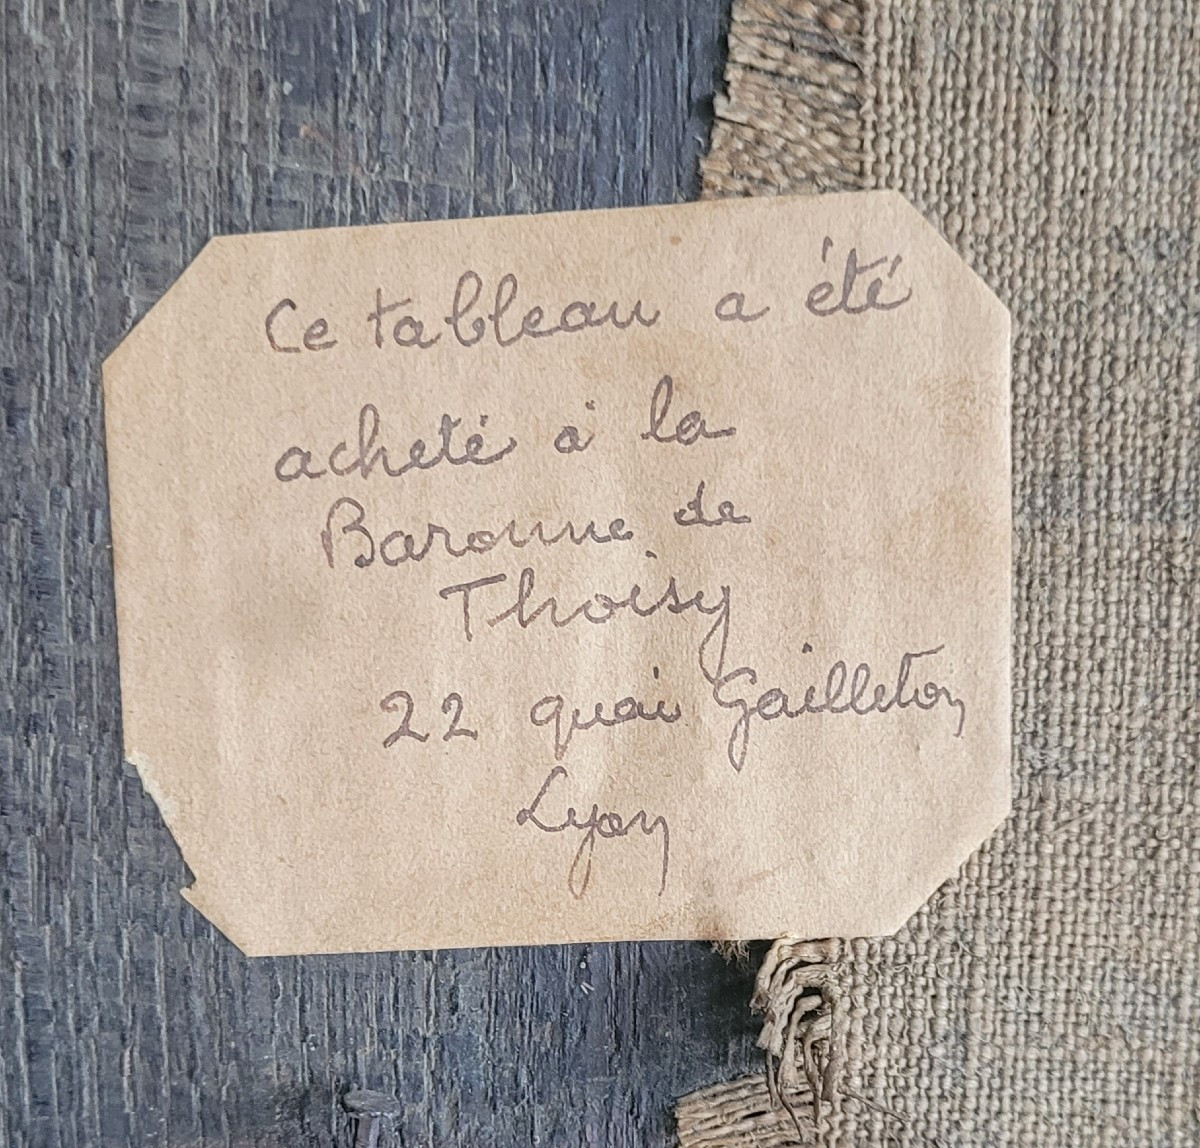 Ce tableau a été
acheté à la
Baronne de
Thoisy
22 quai Gailleton
Lyon